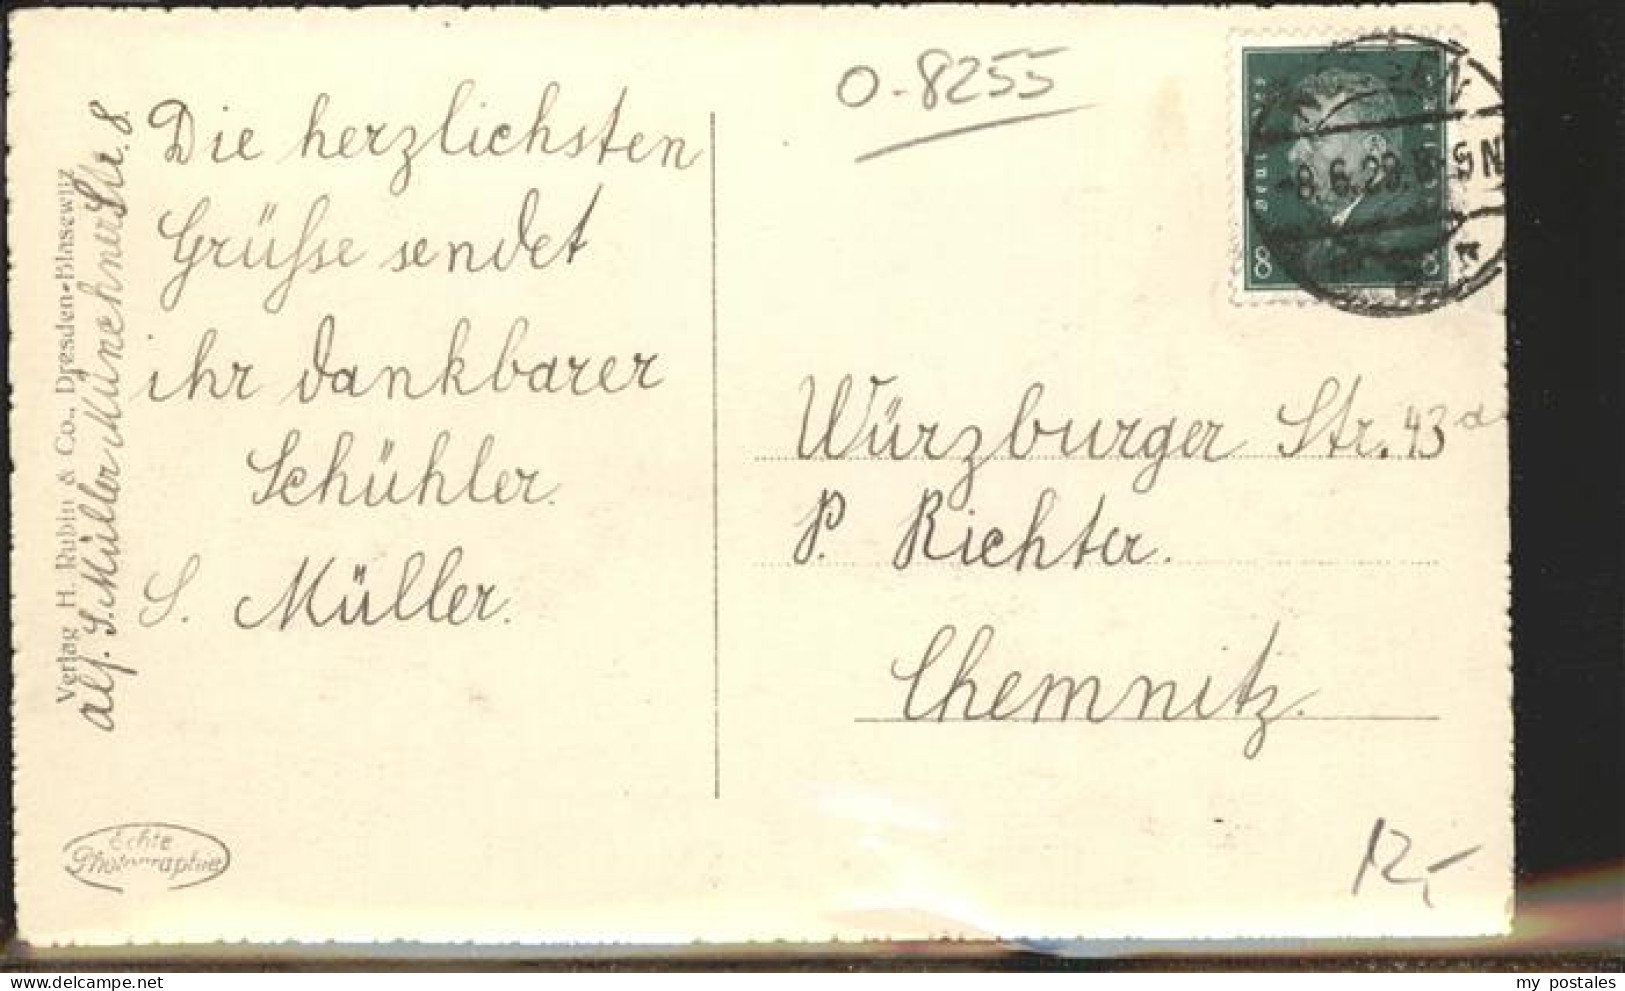 O-8255
Die herzlichsten
Grüße sendet
ihr dankbarer
Schühler.
S. Müller.
alf. S. Müller Münchner Str. 8.
Verlag H. Rubin & Co., Dresden-Blasewitz
Echte
Photographie
8 8
8.6.29. 5 N
Würzburger Str. 43 d
P. Richter.
Chemnitz.
12,-
my postales